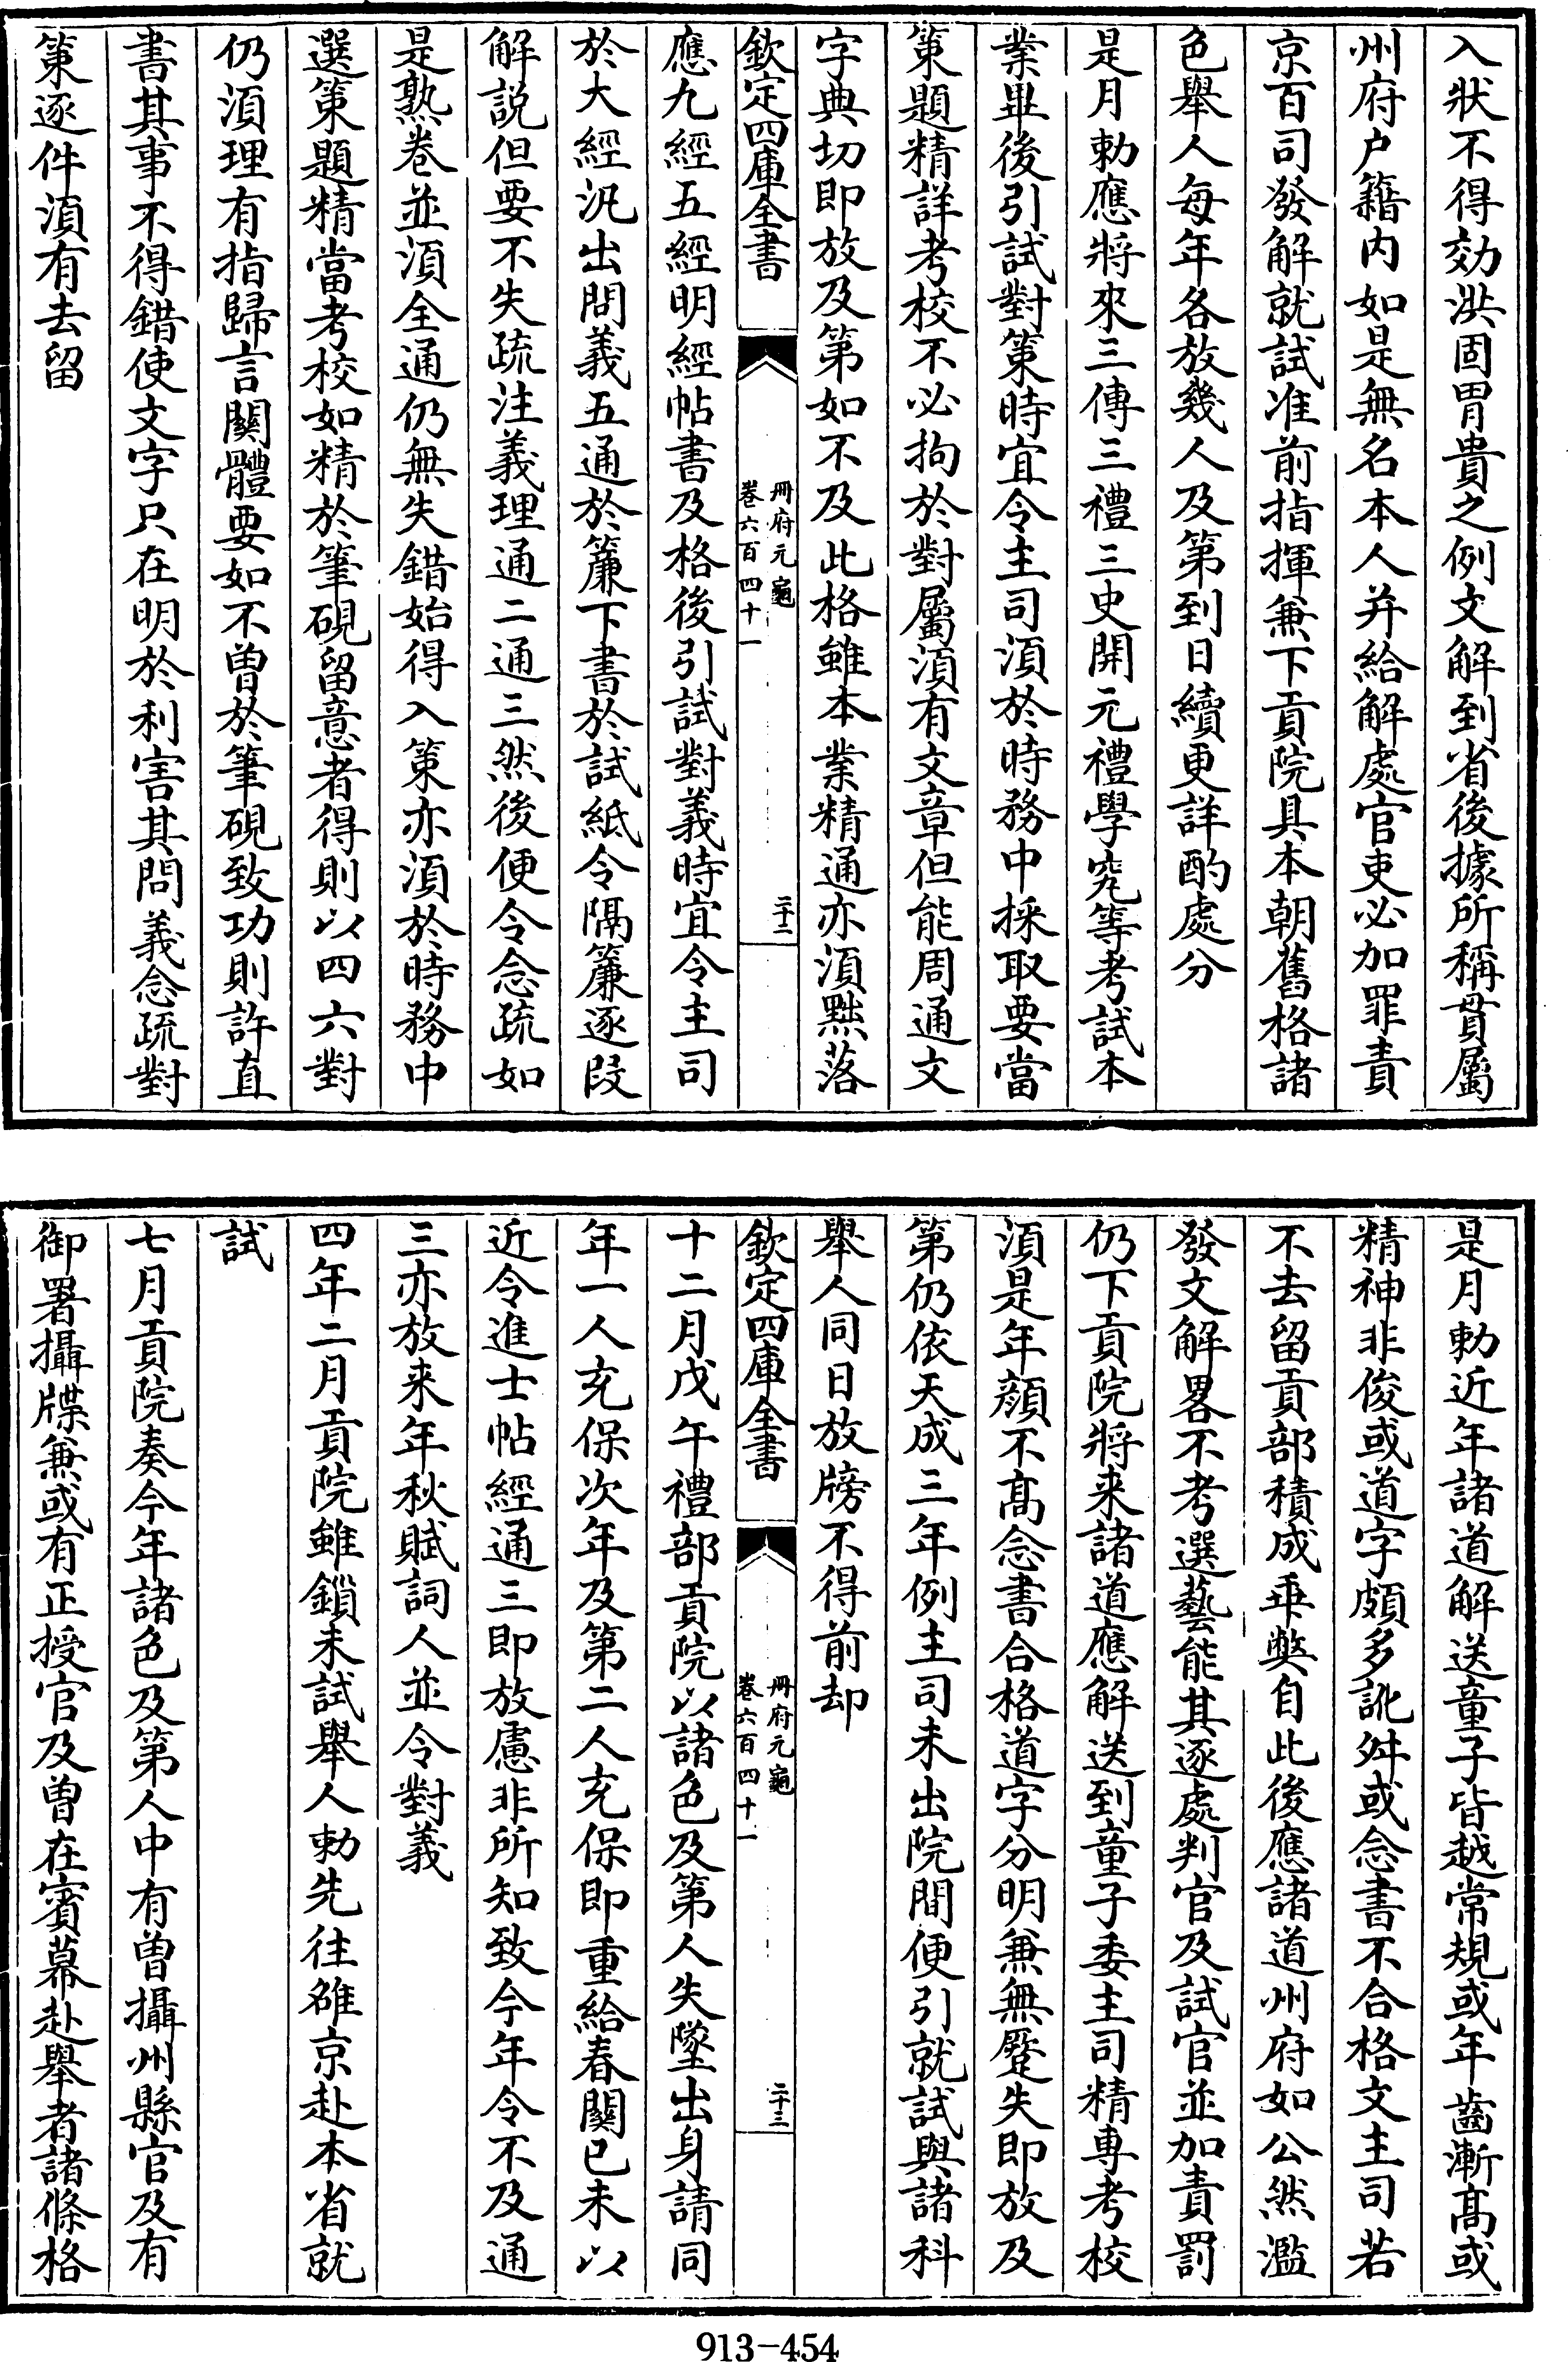 入狀不得効洪固胃貴之例文解到省後據所稱貫屬
州府户籍内如是無名本人并給解處官吏必加罪責
京百司發解就試准前指揮兼下貢院具本朝舊格諸
色舉人每年各放幾人及第到日續更詳酌處分
是月勅應將來三傳三禮三史開元禮學究等考試本
業畢後引試對策時宜令主司須於時務中採取要當
策題精詳考校不必拘於對屬須有文章但能周通文
字典切即放及第如不及此格雖本業精通亦須黜落
欽定四庫全書
冊府元龜
卷六百四十一
二十二
應九經五經明經帖書及格後引試對義時宜令主司
於大經汎出問義五通於簾下書於試紙令隔簾逐段
解説但要不失疏注義理通二通三然後便令念疏如
是熟卷並須全通仍無失錯始得入策亦須於時務中
選策題精當考校如精於筆硯留意者得則以四六對
仍須理有指歸言關體要如不曾於筆硯致功則許直
書其事不得錯使文字只在明於利害其問義念疏對
策逐件須有去留
是月勅近年諸道解送童子皆越常規或年齒漸髙或
精神非俊或道字頗多訛舛或念書不合格文主司若
不去留貢部積成乖獘自此後應諸道州府如公然濫
發文解畧不考選藝能其逐處判官及試官並加責罰
仍下貢院將来諸道應解送到童子委主司精專考校
須是年顔不髙念書合格道字分明兼無蹙失即放及
第仍依天成三年例主司未出院間便引就試與諸科
舉人同日放牓不得前却
欽定四庫全書
冊府元龜
卷六百四十一
二十三
十二月戊午禮部貢院以諸色及第人失墜出身請同
年一人充保次年及第二人充保即重給春關已未以
近令進士帖經通三即放慮非所知致今年令不及通
三亦放来年秋賦詞人並令對義
四年二月貢院雖鎖未試舉人勅先往雒京赴本省就
試
七月貢院奏今年諸色及第人中有曾攝州縣官及有
御署攝牒兼或有正授官及曾在賓幕赴舉者諸條格
913-454